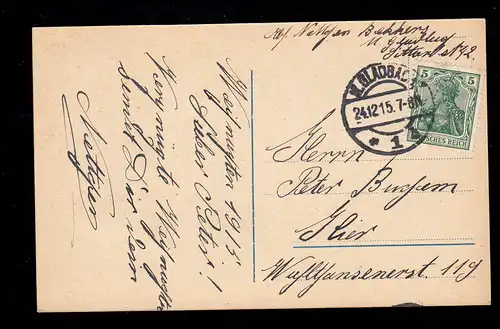 Abs. Nettchen Bekkers
M. Gladbach
M. GLADBACH
24.12.15. 7-8N
* 1
5 5
DEUTSCHES REICH
Herrn
Peter Bussem
Hier
Waldhausenerst. 119
Weihnachten 1915
Lieber Peter!
Vergnügte Weihnachten
sendet Dir dein
Nettchen